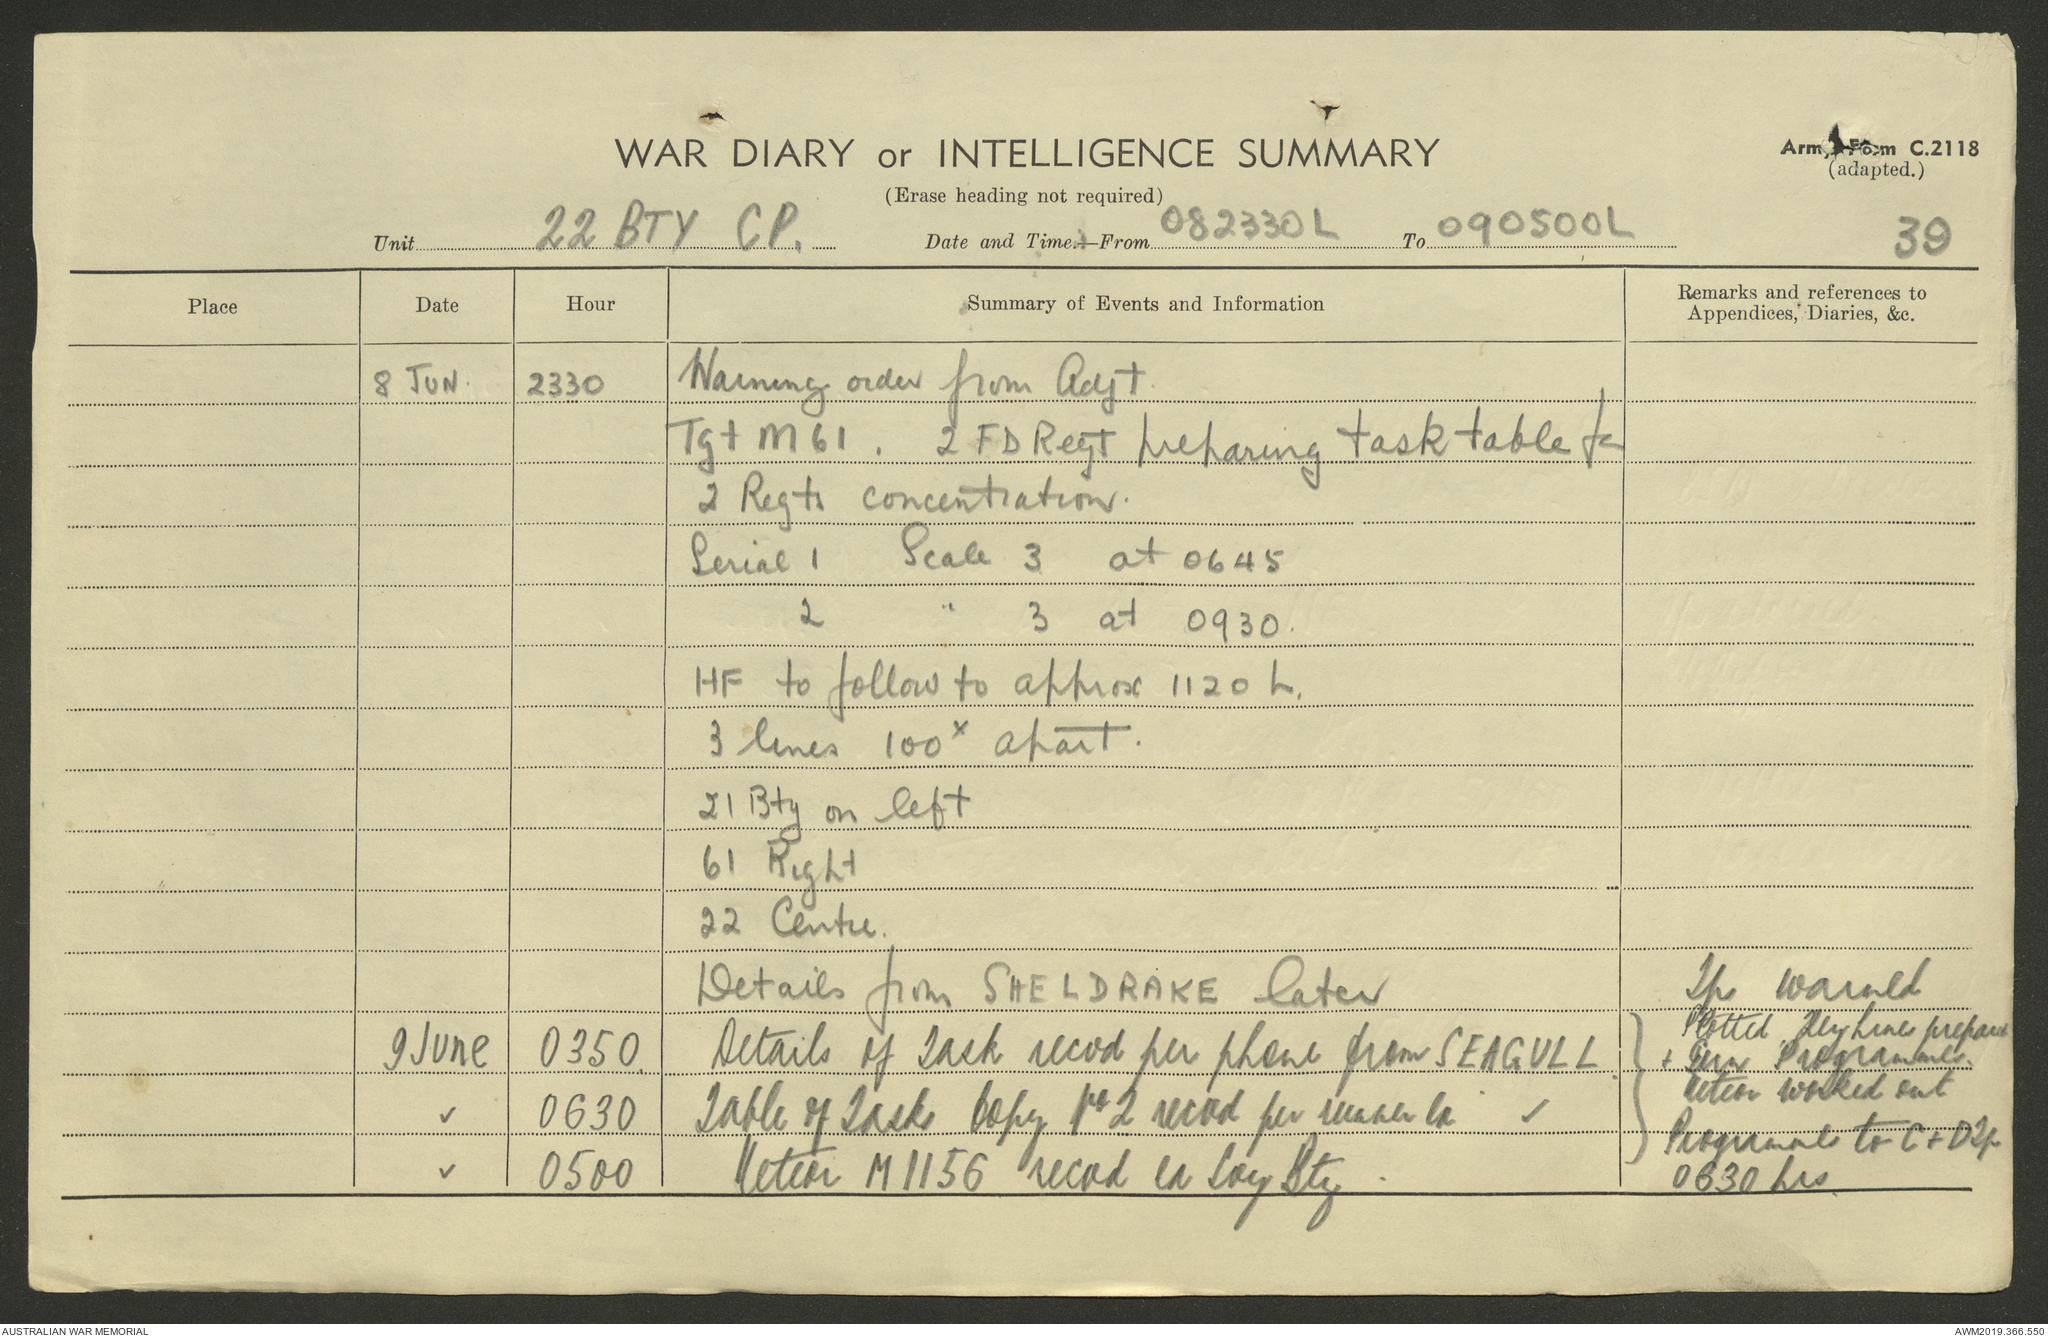 WAR DIARY or INTELLIGENCE SUMMARY
Army Form C.2118
(adapted.)
(Erase heading not required)
Unit 22 BTY CP. Date and Time.—From 082330L To 090500L 39
Place Date Hour Summary of Events and Information Remarks and references to Appendices, Diaries, &c.
8 JUN. 2330 Warning order from Adjt.
Tgt M61. 2 FD Regt preparing task table for
2 Regts concentration.
Serial 1 Scale 3 at 0645
2 " 3 at 0930.
HF to follow to approx 1120 L.
3 lines 100x apart.
21 Bty on left
61 Right
22 Centre.
Details from SHELDRAKE later Tps warned
9 June 0350. Details of Task recvd per phone from SEAGULL Plotted. Key Lines prepared
+ Gun Programmes.
Meteor worked out
✓ 0630 Table of Tasks Copy No 2 recvd per runner ✓
Programme to C + D Tp
✓ 0500 Meteor M1156 recvd Bty. 0630 hrs.
AUSTRALIAN WAR MEMORIAL
AWM2019.366.550